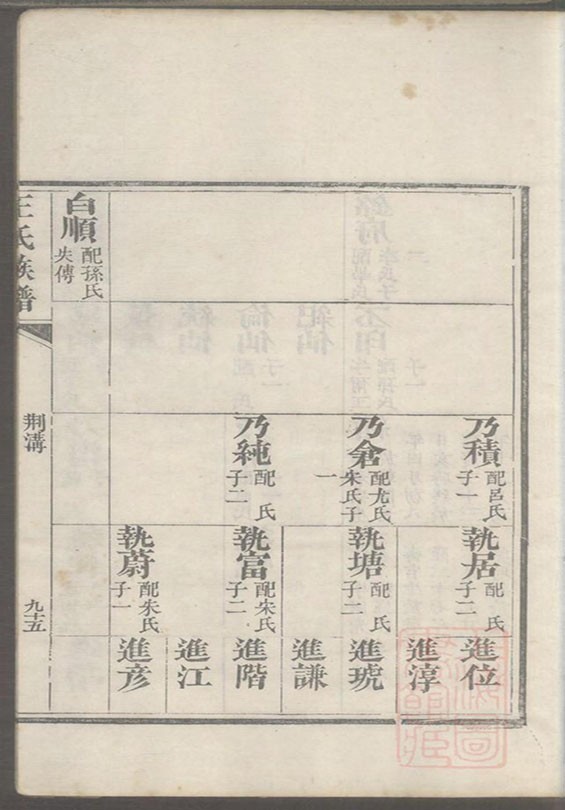 乃積 配呂氏 子一
乃倉 配尤氏 朱氏子 一
乃純 配　氏 子二
執居 配　氏 子二
執塘 配　氏 子二
執富 配宋氏 子二
執蔚 配朱氏 子一
進位
進淳
進琥
進謙
進階
進江
進彦
白順 配孫氏 失傳
王氏族譜
荆溝
九十五